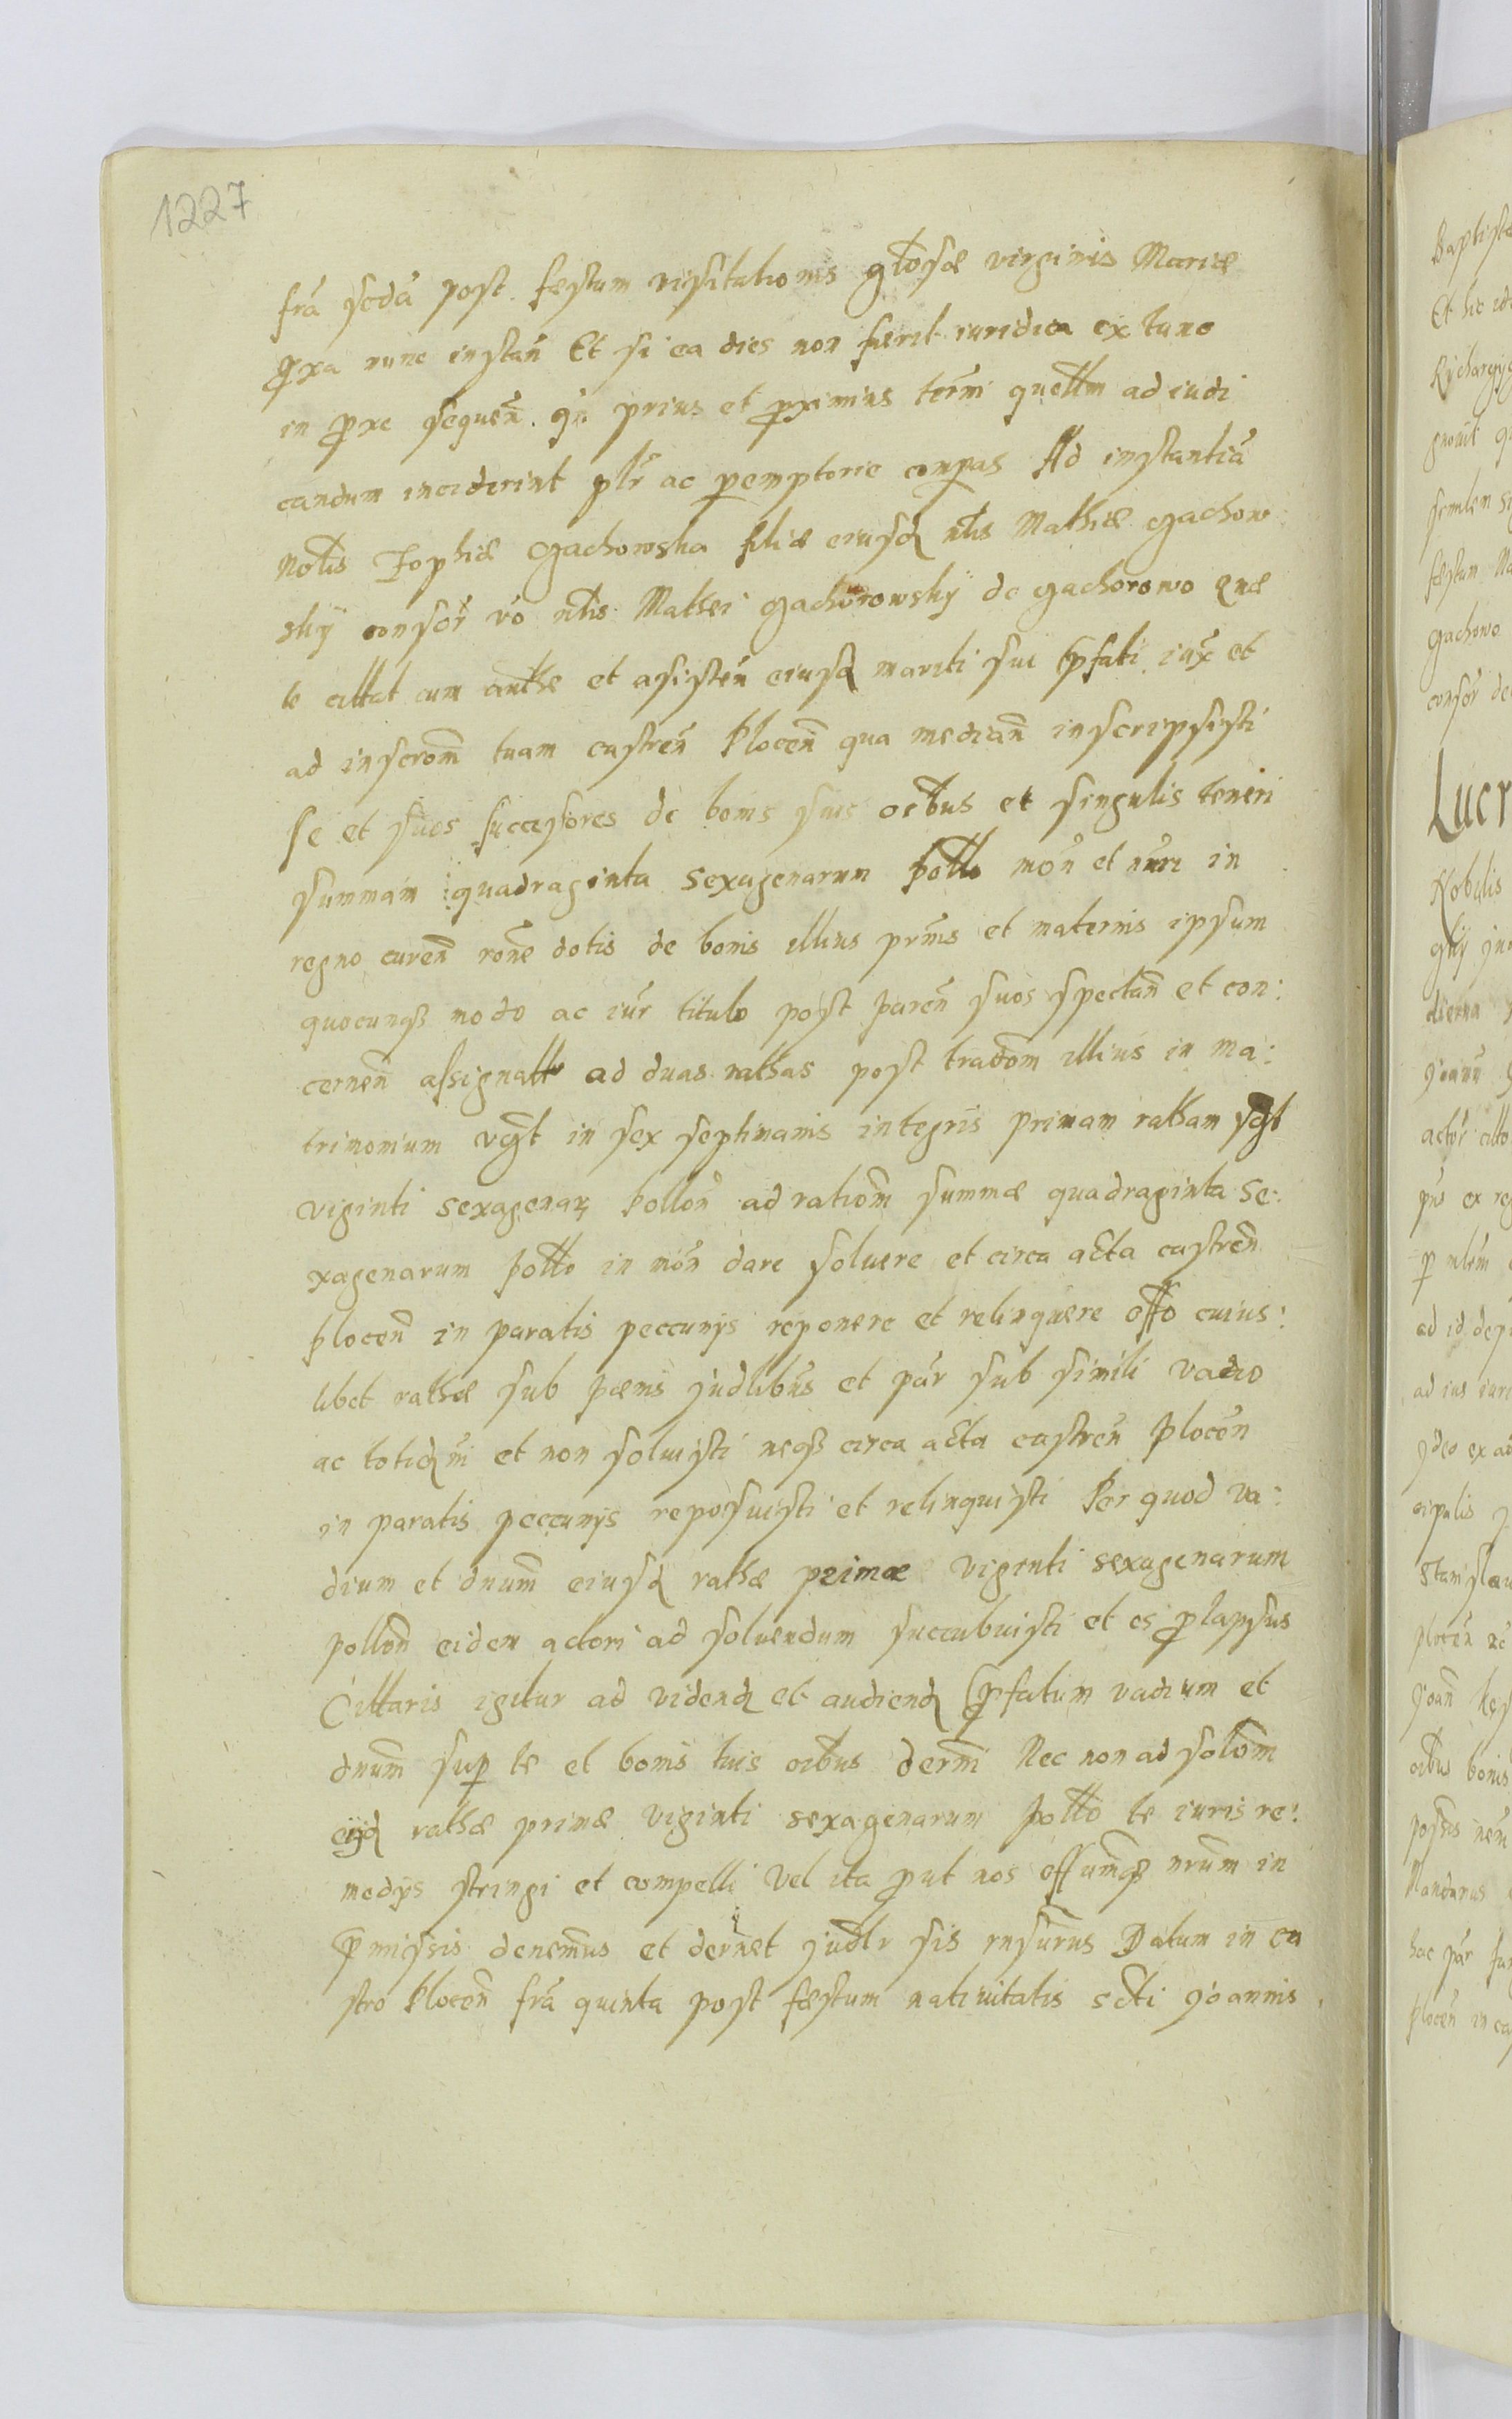 1227
frã scdã post festum visitationis glõsæ virginis Mariæ
pxa nunc instañ Et si ea dies non fuerit iuridica ex tunc
in pxe sequeñ. qñ prius et pximius termi querllm ad iudi
candum inciderint plr ac pemptorie compas Ad instantiã
Nolis Zophiæ Gachowska filiæ eiusd nlis Mathiæ Gachow
skij consor vo nlis Mathei Gachorowskÿ de Gachorowo quæ
te cittat cum authe et asisteñ eiusd mariti sui pfati iux et
ad inscrom tuam castreñ Ploceñ qua mediañ inscripsisti
se et suos succesores de bonis suis oibus et singulis teneri
summam quadraginta sexagenarum pollo moñ et nuri in
regno cureñ rone dotis de bonis illius prnis et maternis ipsum
quocunq modo ac iur titulo post pareñ suos spectañ et con:
cerneñ assignatt ad duas rathas post tradom illius in ma:
trimonium vgt in sex septimanis integris primam ratham sgt
viginti sexagenar polloñ ad ratiom summæ quadraginta se:
xagenarum pollo in moñ dare soluere et circa acta castreñ
ploceñ in paratis peccunijs reponere et relinquere offo cuius:
libet rathæ sub pæenis judlibus et par sub simili vadio
ac totidm et non soluisti neq circa acta castreñ ploceñ
in paratis peccunijs reposuisti et relinquisti Per quod va:
dium et dnum eiusd rathæ primæ viginti sexagenarum
polloñ eidem actori ad soluendum succubuisti et es plapsus
Cittaris igitur ad vidend et audiend pfatum vadium et
dnum sup te et bonis tuis oibus derni Nec non ad solom
eijd rathæ primæ viginti sexagenarum pollo te iuris re:
medijs stringi et compelli Vel ita put nos offumq nrum in
pmissis denemus et dernet judlr sis rnsurus Datum in ca
stro Ploceñ frã quinta post festum nativitatis scti Joannis
Baptistæ
Et hic
gnouit
festum
Gachowo
consor de
Lucr
Nobilis
ad id
ad ius
Stanislau
ploceñ
oibus bonis
Mandamus
hac par
ploceñ in ca